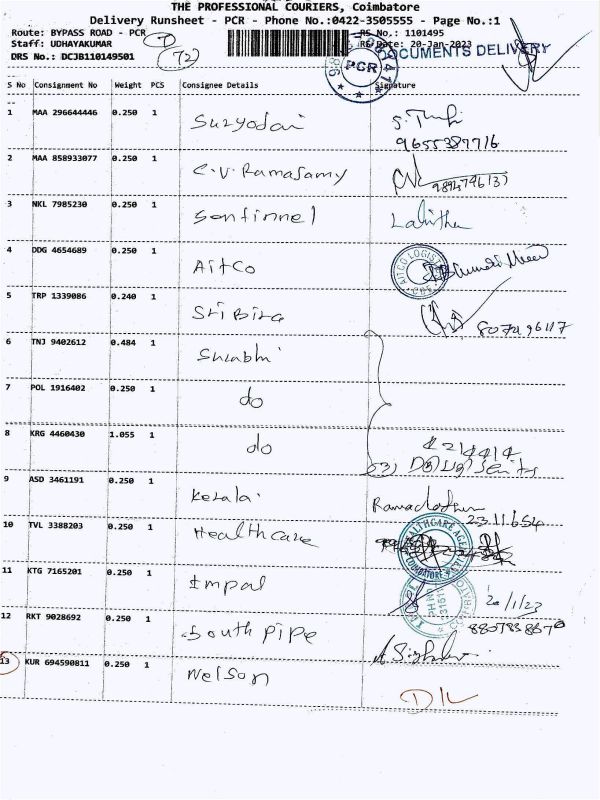 THE PROFESSIONAL COURIERS, Coimbatore
Delivery Runsheet - PCR - Phone No.:0422-3505555 - Page No.:1
Route: BYPASS ROAD - PCR
RS No.: 1101495
Staff: UDHAYAKUMAR
Date: 20-Jan-2023
DOCUMENTS DELIVERY
DRS No.: DCJB110149501
72
PCR
S No Consignment No Weight PCS Consignee Details Signature
1 MAA 296644446 0.250 1 Suryodai
9655387716
2 MAA 858933077 0.250 1 C.V. Ramasamy
3 NKL 7985230 0.250 1 Sentinnel Lalitha
4 DDG 4654689 0.250 1 AitCo
AITCO LOGIST
5 TRP 1339086 0.240 1
6 TNJ 9402612 0.484 1 Surabhi
7 POL 1916402 0.250 1 do
8 KRG 4460430 1.055 1 do
9 ASD 3461191 0.250 1 Kerala
10 TVL 3388203 0.250 1 Healthcare
HEALTHCARE AGEN
COIMBATORE
11 KTG 7165201 0.250 1 Impal
20/1/23
12 RKT 9028692 0.250 1 South pipe
13 KUR 694590811 0.250 1 Nelson
D/L